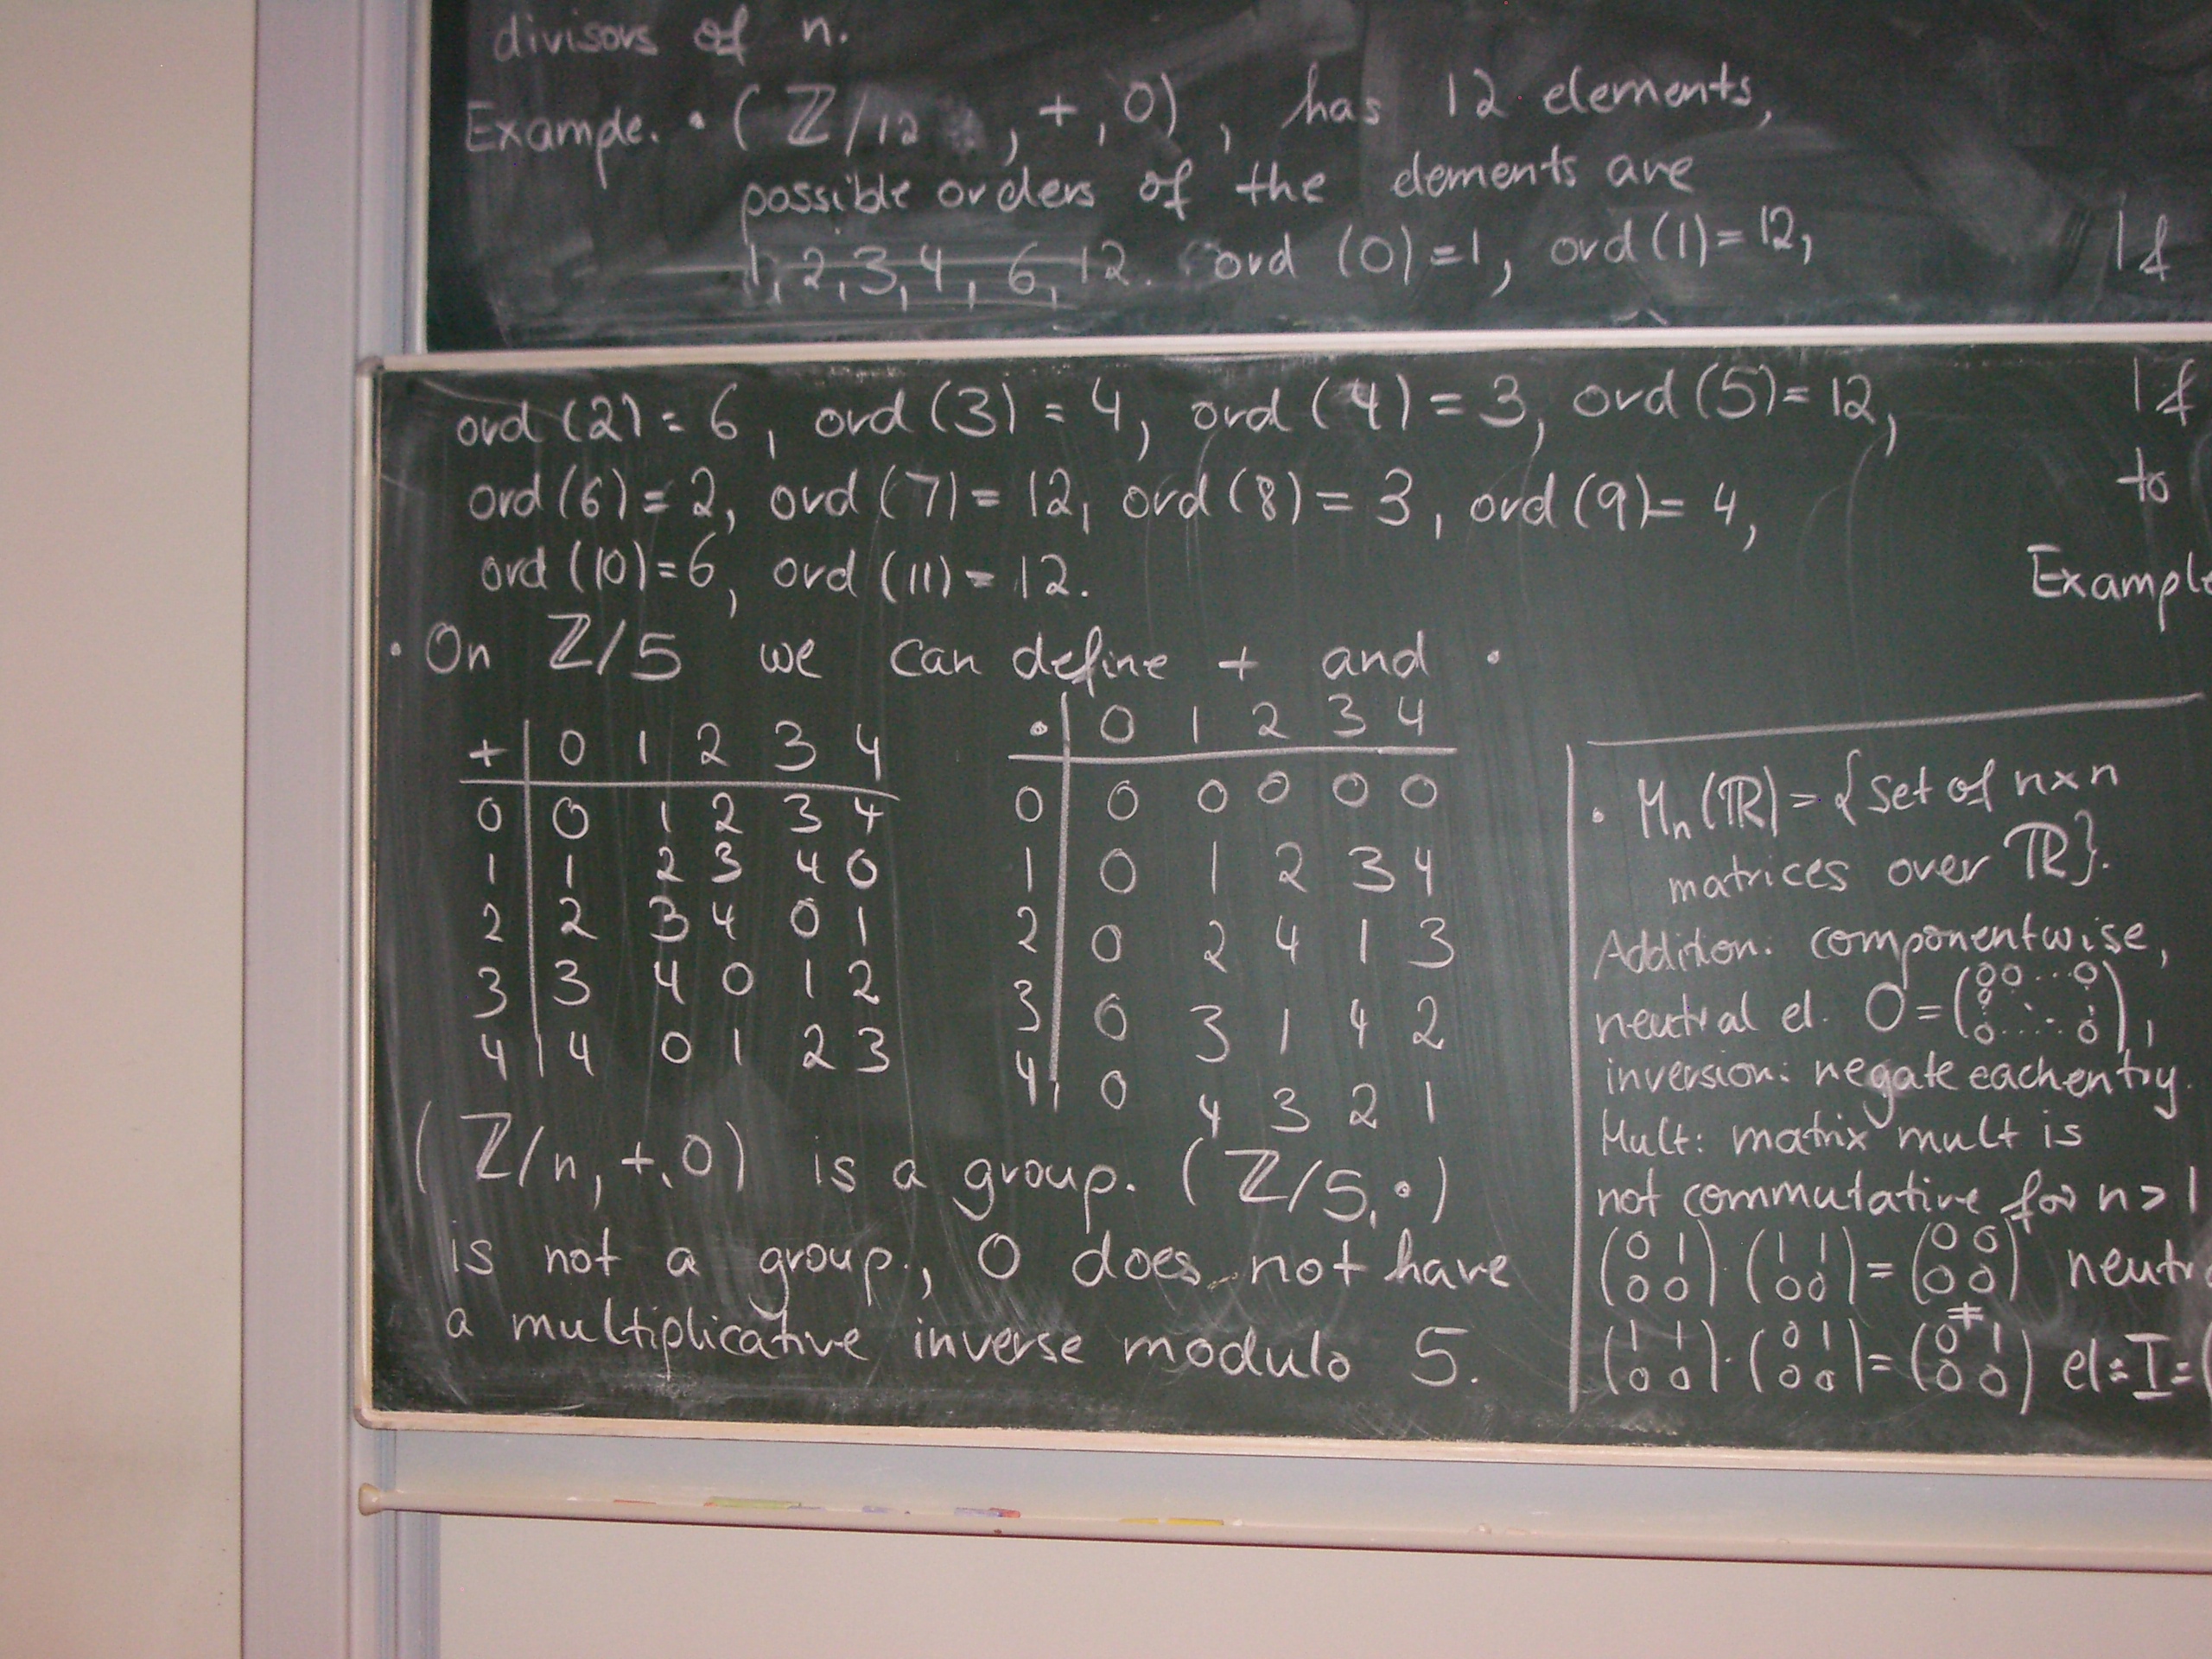 divisors of n.
Exampe. • (ℤ/12 , +, 0), has 12 elements,
possible orders of the elements are
1, 2, 3, 4, 6, 12. ord (0) = 1, ord (1) = 12,
If
ord (2) = 6, ord (3) = 4, ord (4) = 3, ord (5) = 12,
ord (6) = 2, ord (7) = 12, ord (8) = 3, ord (9) = 4,
ord (10) = 6, ord (11) = 12.
• On ℤ/5 we can define + and •
+ | 0 1 2 3 4
0 | 0 1 2 3 4
1 | 1 2 3 4 0
2 | 2 3 4 0 1
3 | 3 4 0 1 2
4 | 4 0 1 2 3
• | 0 1 2 3 4
0 | 0 0 0 0 0
1 | 0 1 2 3 4
2 | 0 2 4 1 3
3 | 0 3 1 4 2
4 | 0 4 3 2 1
(ℤ/n, +, 0) is a group. (ℤ/5, •)
is not a group, 0 does not have
a multiplicative inverse modulo 5.
If
to
Example
• Mn(ℝ) = {set of n×n
matrices over ℝ}.
Addition: componentwise,
neutral el. 0 = (0 0 ... 0; 0 ⋱ ⋮; 0 ... 0),
inversion: negate each entry.
Mult: matrix mult is
not commutative for n > 1
(0 1; 0 0) · (1 1; 0 0) = (0 0; 0 0)
≠
(1 1; 0 0) · (0 1; 0 0) = (0 1; 0 0)
el = I = (